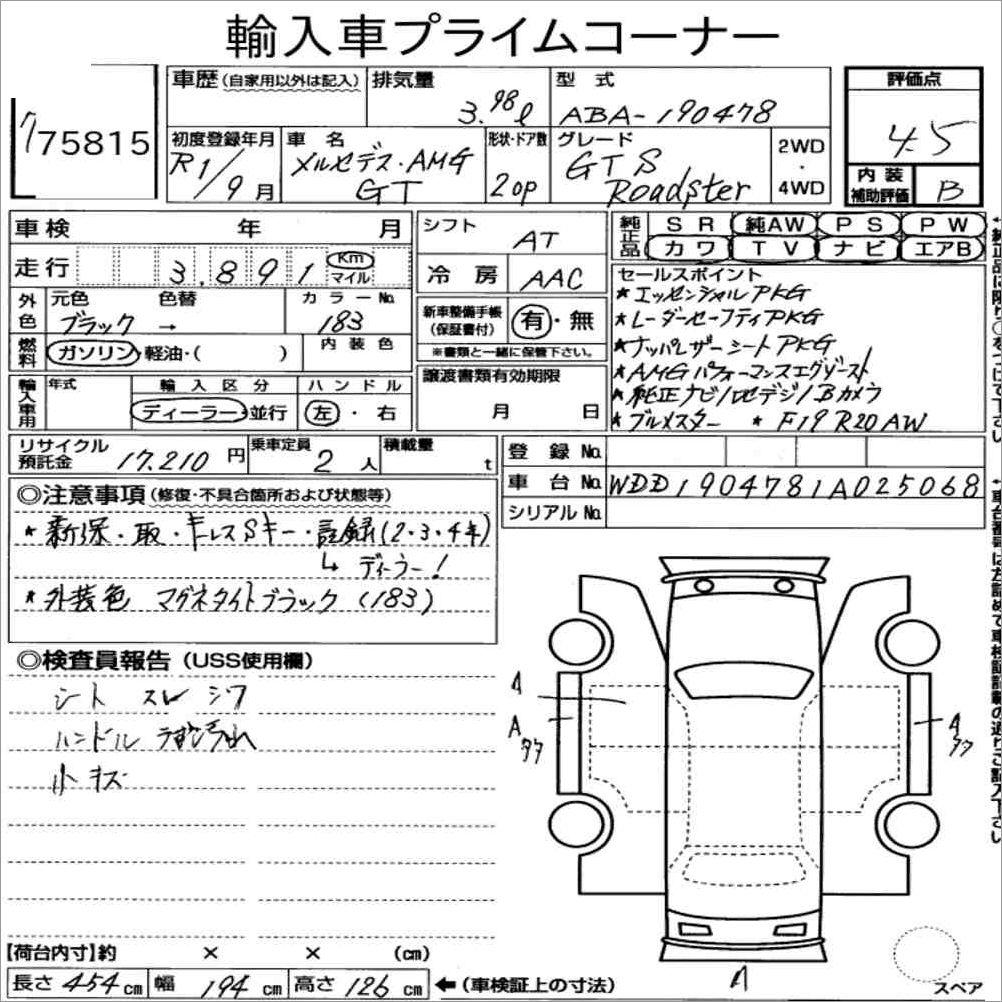 輸入車プライムコーナー
75815
車歴(自家用以外は記入)
排気量 3.98ℓ
型式 ABA-190478
評価点 4.5
初度登録年月 R1/9月
車名 メルセデス・AMG GT
形状・ドア数 2 OP
グレード GT S Roadster
2WD・4WD
内装補助評価 B
車検 年 月
シフト AT
純正品 SR 純AW PS PW
カワ TV ナビ エアB
走行 3,891 Km マイル
冷房 AAC
外色 元色 ブラック → 色替 カラーNo. 183
新車整備手帳(保証書付) 有・無
※書類と一緒に保管下さい。
燃料 ガソリン・軽油・( ) 内装色
セールスポイント
★エッセンシャルPKG
★レーダーセーフティPKG
★ナッパレザーシートPKG
★AMGパフォーマンスエグゾースト
★純正ナビ/地デジ/Bカメラ
★ブルメスター ★F19 R20 AW
輸入車用 年式 輸入区分 ディーラー・並行 ハンドル 左・右
譲渡書類有効期限 月 日
リサイクル預託金 17,210円
乗車定員 2人
積載量 t
登録No.
車台No. WDD1904781A025068
シリアルNo.
◎注意事項(修復・不具合箇所および状態等)
★新保・取・キーレスSキー・記録(2・3・4年)
↳ディーラー!
★外装色 マグネタイトブラック(183)
◎検査員報告(USS使用欄)
シート スレ シワ
ハンドル
小キズ
A
A
タタ
A
タタ
A
スペア
【荷台内寸】約 × × (cm)
長さ 454cm 幅 194cm 高さ 126cm ←(車検証上の寸法)